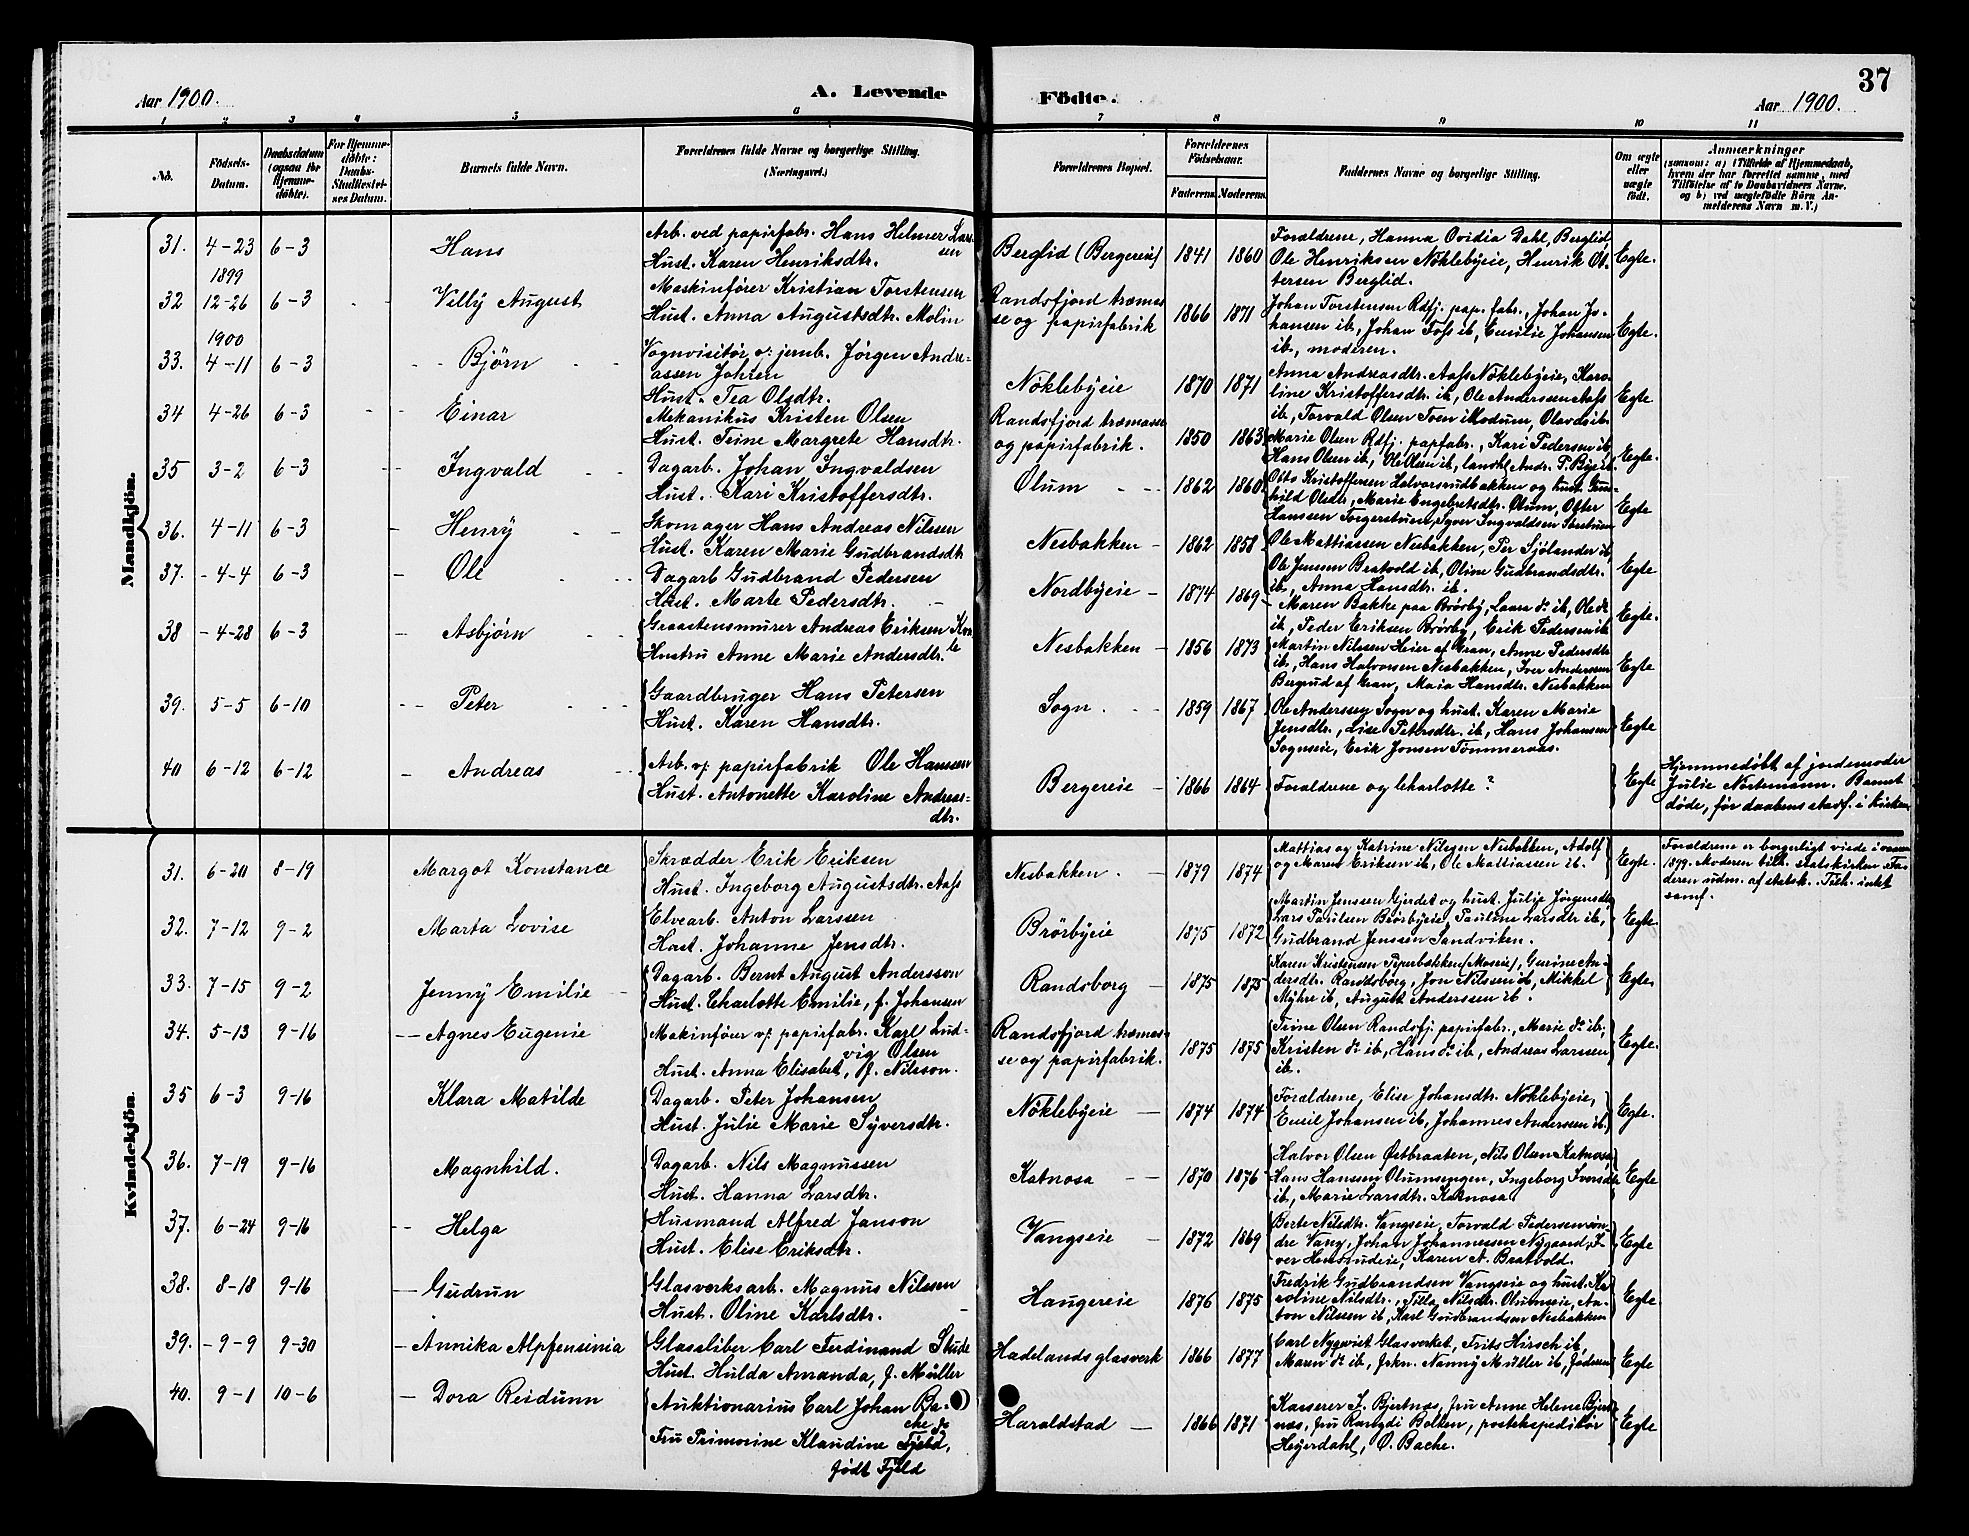 Aar 1900.
A. Levende Födte.
37
Aar 1900.
1 2 3 4 5 6 7 8 9 10 11
No.
Födsels-Datum.
Daabsdatum (ogsaa for Hjemmedöbte).
For Hjemmedöbte: Daabs-Stadfæstelses Datum.
Barnets fulde Navn.
Forældrenes fulde Navne og borgerlige Stilling. (Næringsvei.)
Forældrenes Bopæl.
Forældrenes Födselsaar.
Faderens. Moderens.
Faddernes Navne og borgerlige Stilling.
Om ægte eller uægte födt.
Anmærkninger
(saasom: a) i Tilfælde af Hjemmedaab, hvem der har forrettet samme, med Tilföielse af to Daabsvidners Navne. og b) ved uægtefödte Börn Anmelderens Navn m. V.)
Mandkjön.
31. 4-23 6-3 Hans
Arb. ved papirfabr. Hans Helmer Larssen
Hust. Karen Henriksdtr.
Berglid (Bergereie) 1841 1860
Forældrene, Hanna Ovidia Dahl, Berglid,
Ole Henriksen Nöklebyeie, Henrik Ot-
tersen Berglid.
Egte.
1899
32 12-26 6-3 Villy August
Maskinförer Kristian Torstensen
Hust. Anna Augustsdtr. Molin
Randsfjord træmas-
se og papirfabrik
1866 1871
Johan Torstensen Rdfj. pap. fabr., Johan Jo-
hansen ib, Johan Foss ib, Emilie Johansen
ib, moderen.
Egte.
1900
33. 4-11 6-3 Björn
Vognvisitör v: jernb. Jörgen Andre-
assen Johren
Hust. Tea Olsdtr.
Nöklebyeie 1870 1871
Anna Andreasdtr. Aass Nöklebyeie, Karo-
line Kristoffersdtr. ib, Ole Anderssen Aass
ib, Torvald Olsen Toen i Modum, Olavds ib.
Egte
34 4-26 6-3 Einar
Mekanikus Kristen Olsen
Hust. Trine Margrete Hansdtr.
Randsfjord træmasse
og papirfabrik. 1850 1863
Marie Olsen Rdfj. papfabr., Kari Pedersen ib,
Hans Olsen ib, Ole Olsen ib, landh. Andr. P. Bye ib.
Egte.
35 3-2 6-3 Ingvald
Dagarb. Johan Ingvaldsen
Hust. Kari Kristoffersdtr.
Olum 1862 1860
Otto Kristoffersen Halvorsrudbakken og hust. Gun-
hild Olsdtr, Marie Engebretsdtr. Olum, Ofter
Hanssen Torgerstuen, Syver Ingvaldsen
Egte
36. 4-11 6-3 Henry
Skomager Hans Andreas Nilssen
Hust. Karen Marie Gudbrandsdtr
Nesbakken 1862 1858
Ole Mattiassen Nesbakken, Per Sjölander ib,
Ole Jenssen Bratvold ib, Oline Gudbrandsdtr.
ib, Anna Hansdtr. ib.
Egte
37. 4-4 6-3 Ole
Dagarb Gudbrand Pedersen
Hust. Marte Pedersdtr.
Nordbyeie 1874 1869
Maren Bakke paa Brörby, Laura do ib, Ole do
ib, Peder Eriksen Brörby, Erik Pedersen ib
Egte.
38 4-28 6-3 Asbjörn
Graastensmurer Andreas Eriksen
Hustru Anne Marie Andersdtr.
Nesbakken 1856 1873
Martin Nilssen Heier af Gran, Anne Pedersdtr
ib, Hans Halvorsen Nesbakken, Iver Anderssen
Bergrud af Gran, Maia Hansdtr. Nesbakken
Egte
39. 5-5 6-10 Peter
Gaardbruger Hans Petersen
Hust. Karen Hansdtr.
Sogn. 1859 1867
Ole Anderssen Sogn og hust. Karen Marie
Jensdtr., Lise Petersdtr. ib, Hans Johansen
Sognseie, Erik Jonsen Tömmeraas.
Egte
40 6-12 6-12 Andreas
Arb. v: papirfabrik Ole Hanssen
Hust. Antonette Karoline Andreas-
dtr.
Bergereie 1866 1864
Forældrene og Charlotte ?
Egte
Hjemmedöbt af jordemoder
Julie Nostemann. Barnet
döde, för daabens stadf. i kirken.
Kvindekjön.
31. 6-20 8-19 Margot Konstance
Skrædder Erik Eriksen
Hust. Ingeborg Augustsdtr. Aass
Nesbakken. 1879 1874
Mattias og Katrine Nilsen Nesbakken, Adolf
og Maren Eriksen ib, Ole Mattiassen ib.
Egte.
Forældrene er borgerligt viede i
1899. Moderen tilh. statskirken. Fa-
deren udm. af statsk. Tilh. intet
samf.
32. 7-12 9-2 Marta Lovise
Elvearb. Anton Larssen
Hust. Johanne Jensdtr.
Brörbyeie 1875 1872
Martin Jenssen Gjerdet og hust. Julie Jörgensdtr,
Lars Paulsen Brörbyeie, Pauline Larsdtr ib,
Gudbrand Jenssen Sandviken.
Egte.
33. 7-15 9-2 Jenny Emilie
Dagarb. Bernt August Andersson
Hust. Charlotte Emilie, f. Johansen
Randsborg 1875 1875
Karen Kristensen Peperbækken (Moseie), Gurine An-
dersdtr. Randsborg, Jon Nilssen ib, Mikkel
Myhre ib, August Anderssen ib.
Egte.
34. 5-13 9-16 Agnes Eugenie
Makinföier v: papirfabr. Karl Lud-
vig Olsen
Hust. Anna Elisabet, f. Nilsson.
Randsfjord træmas-
se og papirfabrik. 1875 1875
Trine Olsen Randsfj. papirfabr., Marie do ib,
Kristen do ib, Hans do ib, Andreas Larssen
ib.
Egte.
35 6-3 9-16 Klara Matilde
Dagarb. Peter Johansen
Hust. Julie Marie Syversdtr.
Nöklebyeie 1874 1874
Forældrene, Elise Johansdtr. Nöklebyeie,
Emil Johansen ib, Johannes Anderssen ib.
Egte.
36. 7-19 9-16 Magnhild.
Dagarb. Nils Magnussen
Hust. Hanna Larsdtr.
Katnosa 1870 1876
Halvor Olsen Østbraaten, Nils Olsen Katnosa,
Hans Hanssen Olumsengen, Ingeborg Iversdtr
ib, Marie Larsdtr. Katnosa
Egte
37. 6-24 9-16 Helga
Husmand Alfred Janson
Hust. Elise Eriksdtr.
Vangseie 1872 1869
Berte Nilsdtr. Vangseie, Torvald Pedersen sön-
dre Vang, Johan Johannessen Nygaard, I-
ver Hensrudeie, Karen A. Bratvold.
Egte
38. 8-18 9-16 Gudrun
Glasverksarb. Magnus Nilssen
Hust. Oline Karlsdtr.
Haugereie 1876 1875
Fredrik Gudbrandsen Vangseie og hust. Ka-
roline Nilsdtr., Tilla Nilsdtr. Olumseie, An-
ton Nilsen ib, Karl Gudbrandsen Nesbakken
Egte
39. 9-9 9-30 Annika Alpfensinia
Glassliber Carl Ferdinand Stude
Hust. Hulda Amanda, f. Müller
Hadelands glasverk 1866 1877
Carl Nyqvist Glasverket, Frits Hirsch ib,
Maren do ib, frkn. Nanny Müller ib, faderen
Egte
40. 9-1 10-6 Dora Reidunn
Auktionarius Carl Johan Ba-
che og
Fru Primorine Klaudine Fjeld,
födt Fjeld
Haraldstad 1866 1871
Kasserer I. Bjertnæs, fru Anne Helene Bjert-
næs, fru Rangdi Bolken, postekspeditör
Heyerdahl, O. Bache.
Egte